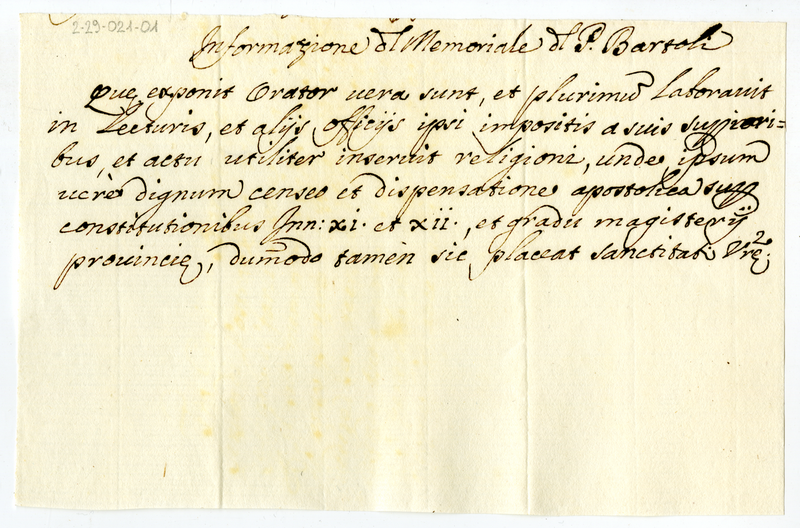 2-29-021-01
Informazione dl Memoriale dl P. Bartoli
Que exponit Orator vera sunt, et plurimū laboravit
in Lecturis, et alijs officijs ipsi impositis a suis superiori=
bus, et actu utiliter inservit religioni, unde ipsum
verè dignum censeo et dispensatione apostolica supr
constitutionibus Inn: xi. et xii., et gradu magisterij
provincię, dum̄odo tamèn sic placeat sanctitati Vrę.